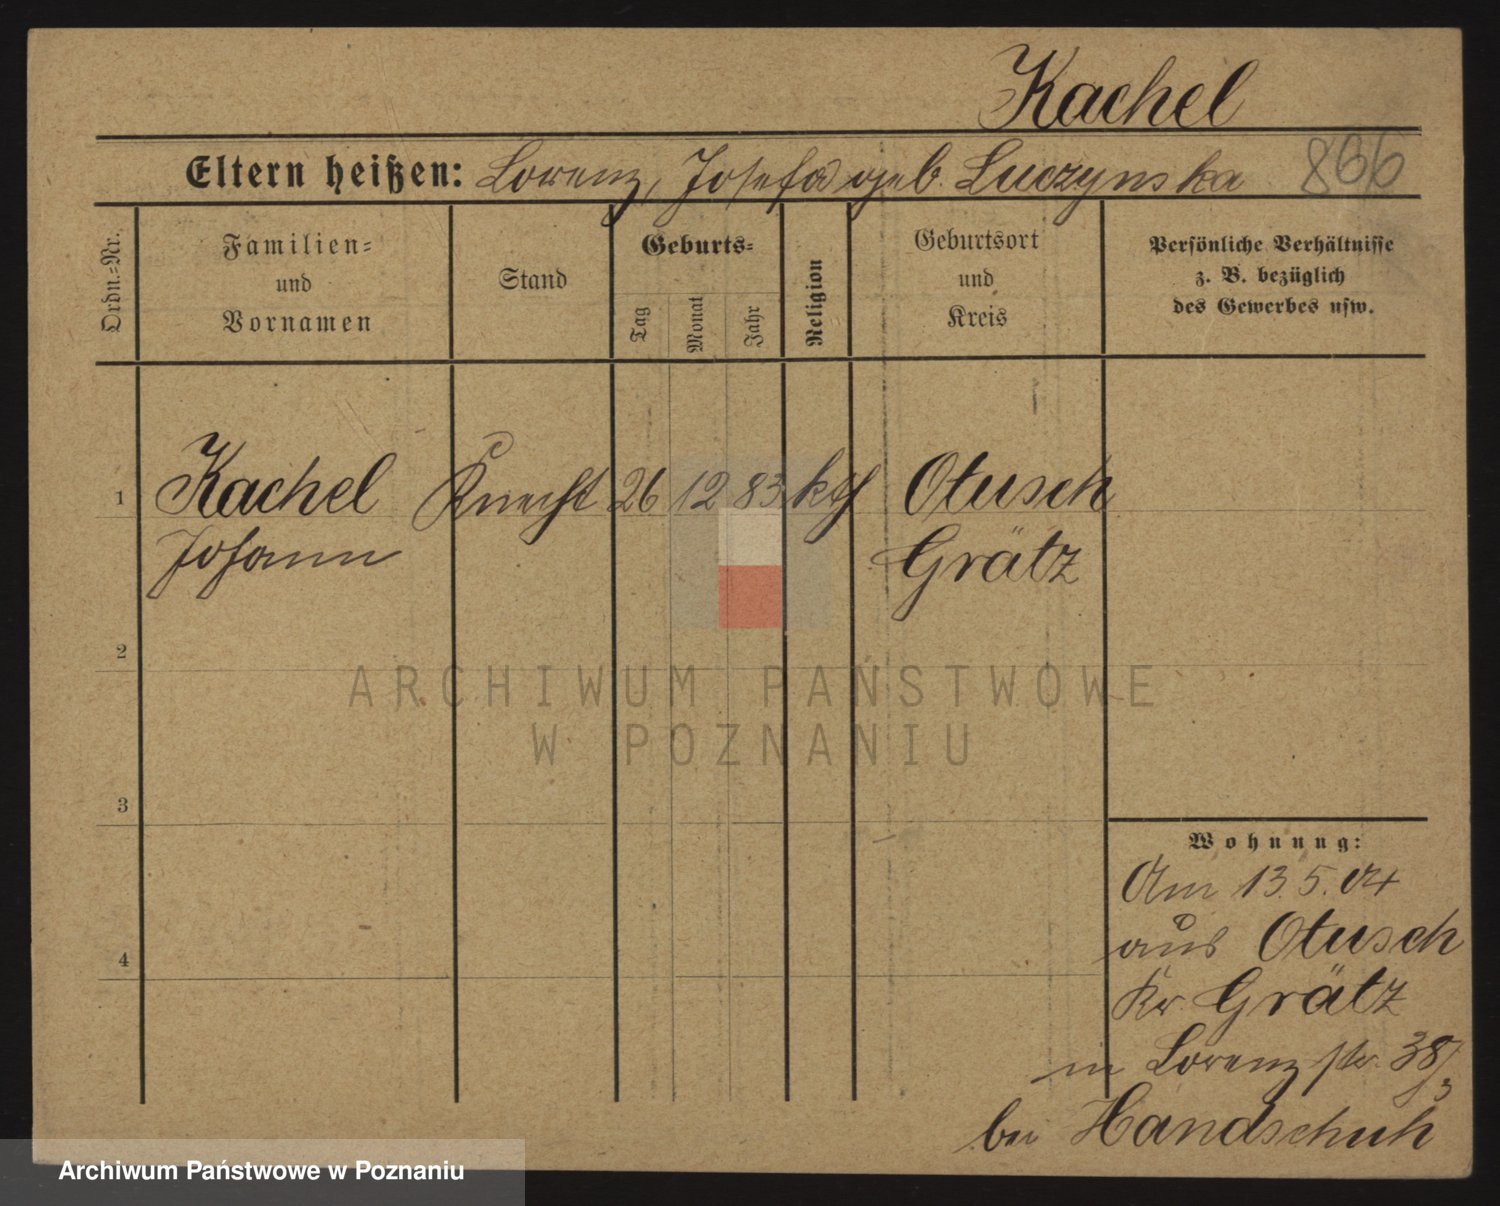 Kachel
Eltern heißen: Lorenz, Josefa geb. Luczynska 866
Ordn.-Nr.
Familien-
und
Vornamen
Stand
Geburts-
Tag
Monat
Jahr
Religion
Geburtsort
und
Kreis
Persönliche Verhältnisse
z. B. bezüglich
des Gewerbes usw.
1 Kachel Knecht 26 12 83 kth Otusch
Johann Grätz
2
3
4
Wohnung:
Am 13.5.04
aus Otusch
Kr. Grätz
in Lorenzstr. 38/3
bei Handschuh
ARCHIWUM PAŃSTWOWE
W POZNANIU
Archiwum Państwowe w Poznaniu